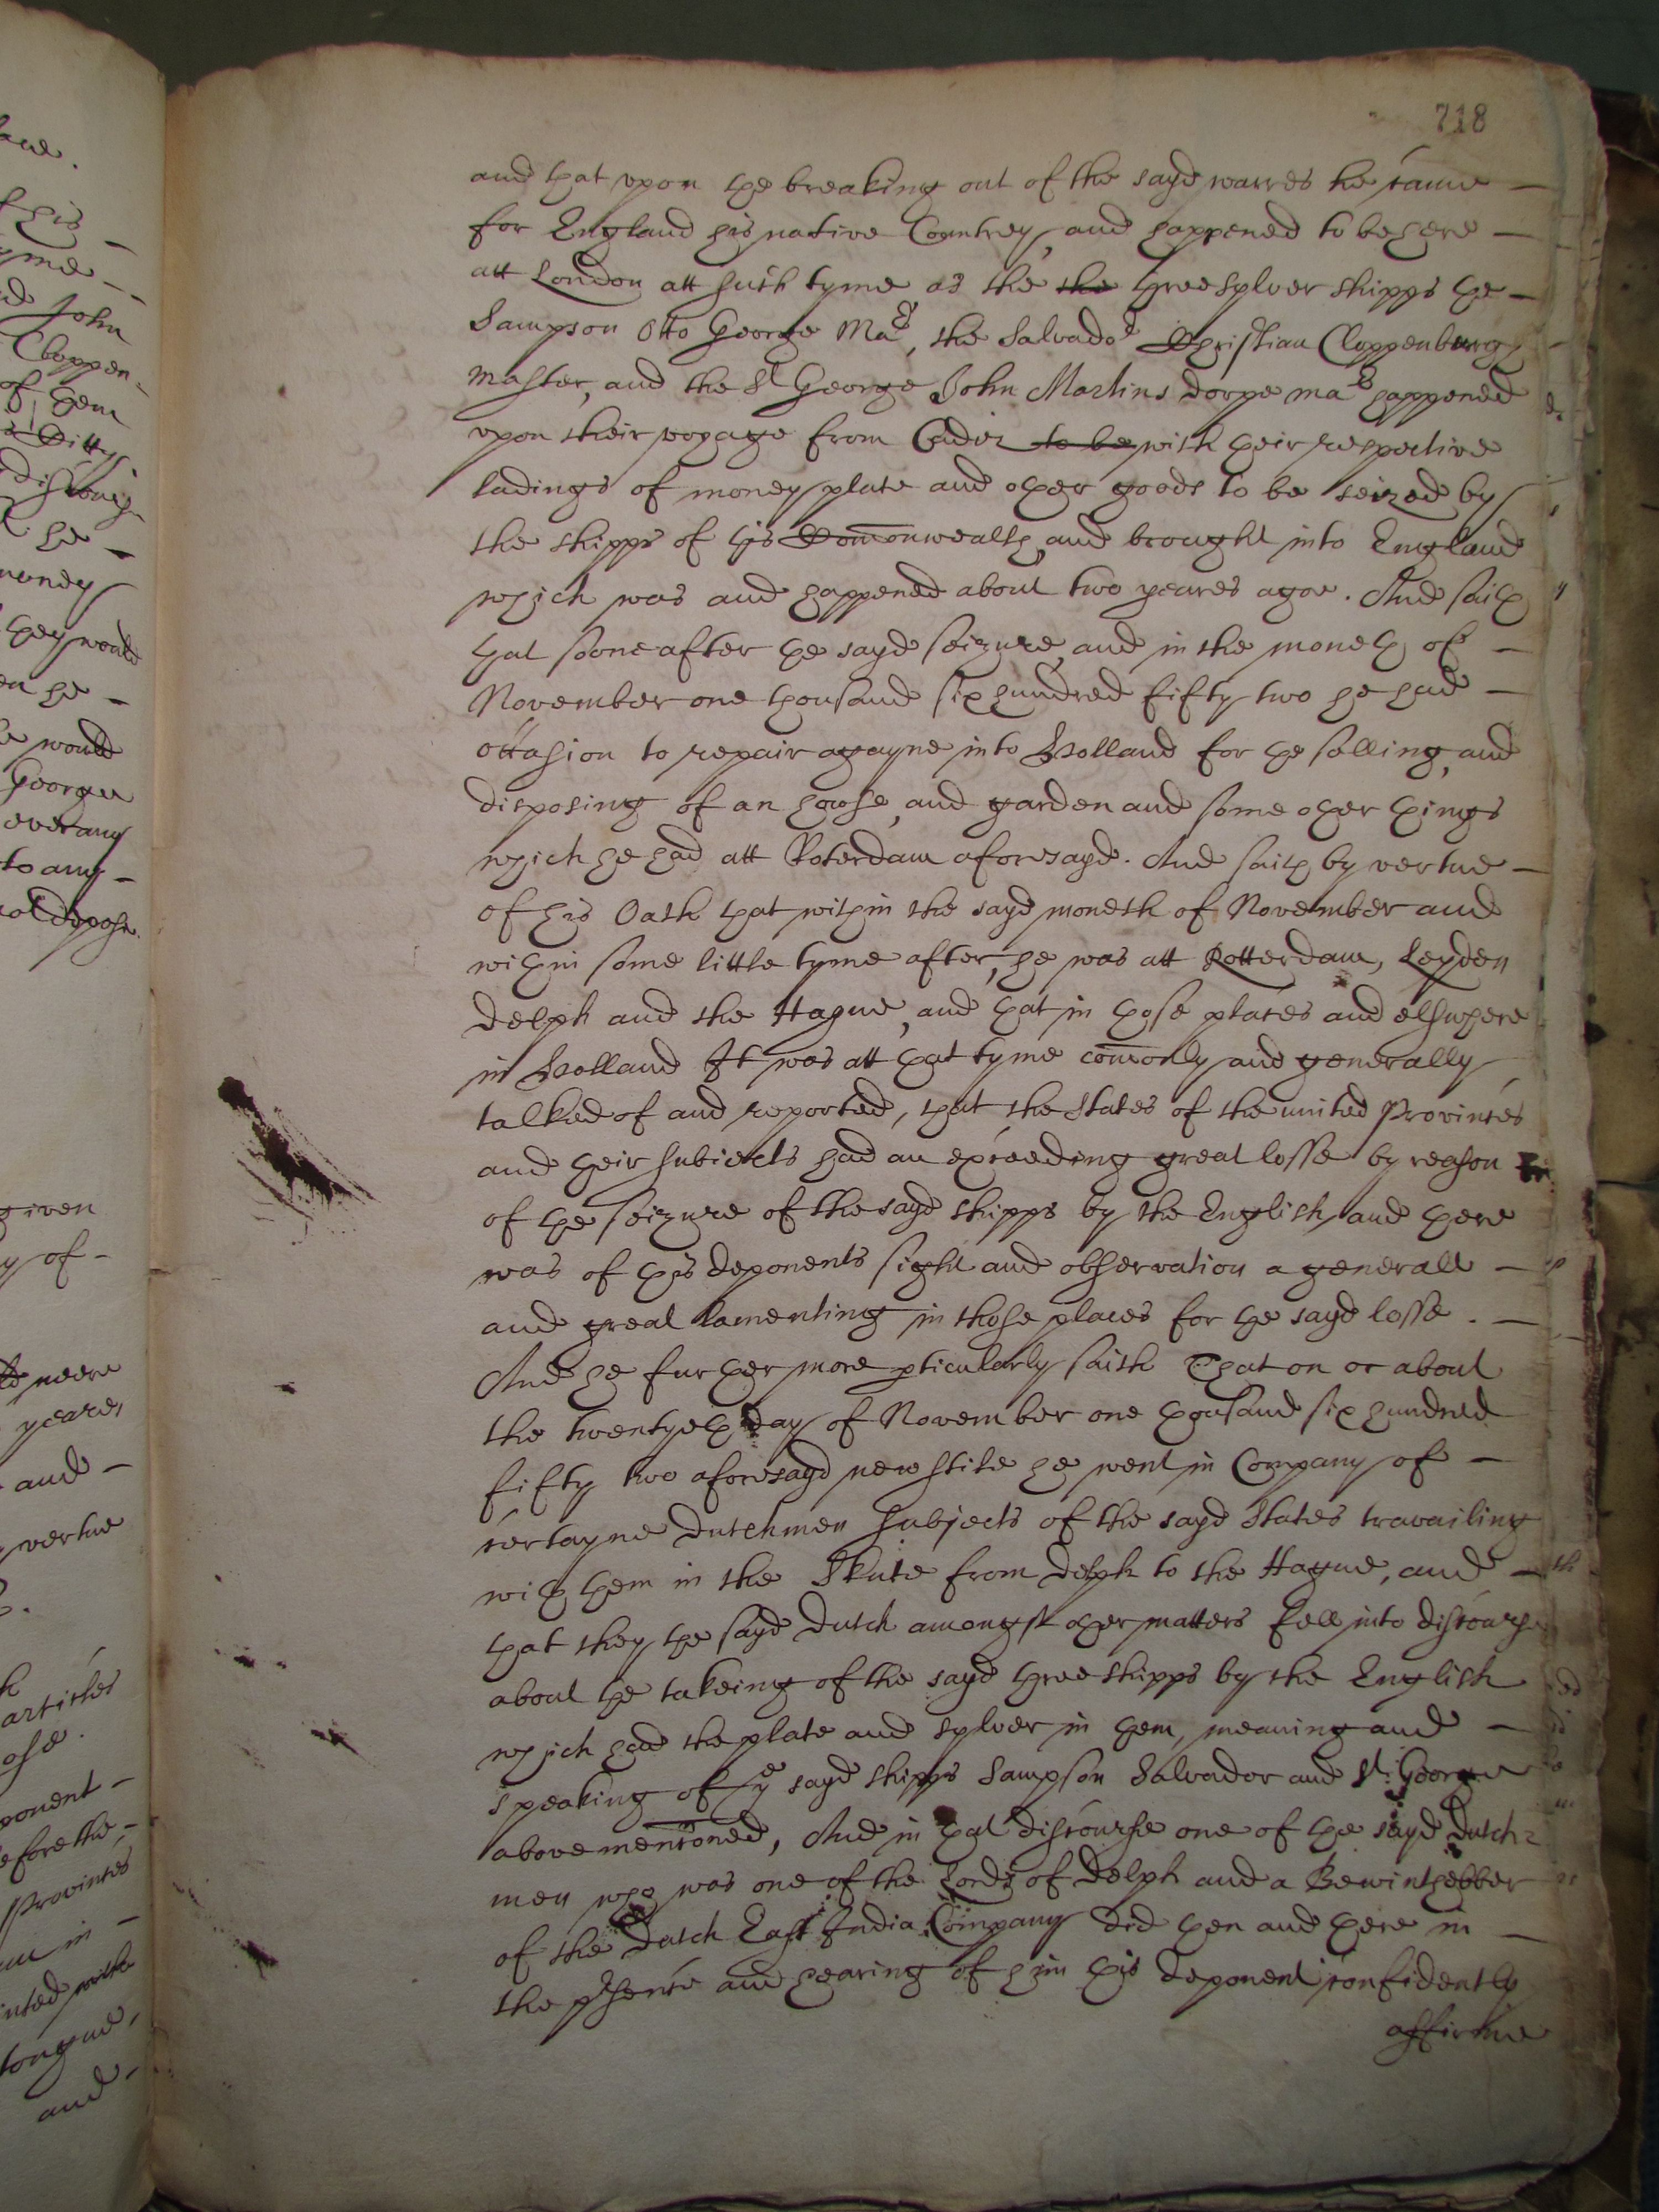 718
and that upon the breaking out of the sayd warres he came
for England his native Countrey, and happened to be here
att London att such tyme as the the three sylver shipps the
Sampson Otto George Mar, the Salvador Christian Cloppenburg
master, and the St George John Martins dorpe mar happened
upon their voyage from Cadiz to be with their respective
ladings of money plate and other goods to be seized by
the shipps of this Comonwealth and brought into England
which was and happened about two yeares agoe. And saith
that soone after the sayd seizure, and in the moneth of
November one thousand six hundred fifty two he had
occasion to repair agayne into Holland for the selling, and
disposing of an howse, and garden and some other things
which he had att Roterdam aforesayd. And saith by vertue
of his Oath that within the sayd moneth of November and
within some little tyme after, he was att Rotterdam, Leyden
Delph and the Hague, and that in those places and elswhere
in Holland It was att that tyme comonly and generally
talked of and reported, that the States of the united Provinces
and their subiects had an exceeding great losse by reason
of the seizure of the sayd shipps by the English, and there
was of this deponents sight and observation a generall
and great lamenting in those places for the sayd losse.
And he further more pticularly saith That on or about
the twentyeth day of November one thousand six hundred
fifty two aforesayd new stile he went in Company of
certayne Dutchmen subjects of the sayd States travailing
with them in the Skute from Delph to the Hague, and
that they the sayd Dutch amongst other matters fell into discourse
about the takeing of the sayd three shipps by the English
which had the plate and sylver in them, meaning and
speaking of ye sayd shipps Sampson Salvador and St. George
above mentoned, And in that discourse one of the sayd Dutch
men who was one of the Lords of Delph and a Bewinthebber
of the Dutch East India Company did then and there in
the psence and hearing of him this deponent confidently
affirme